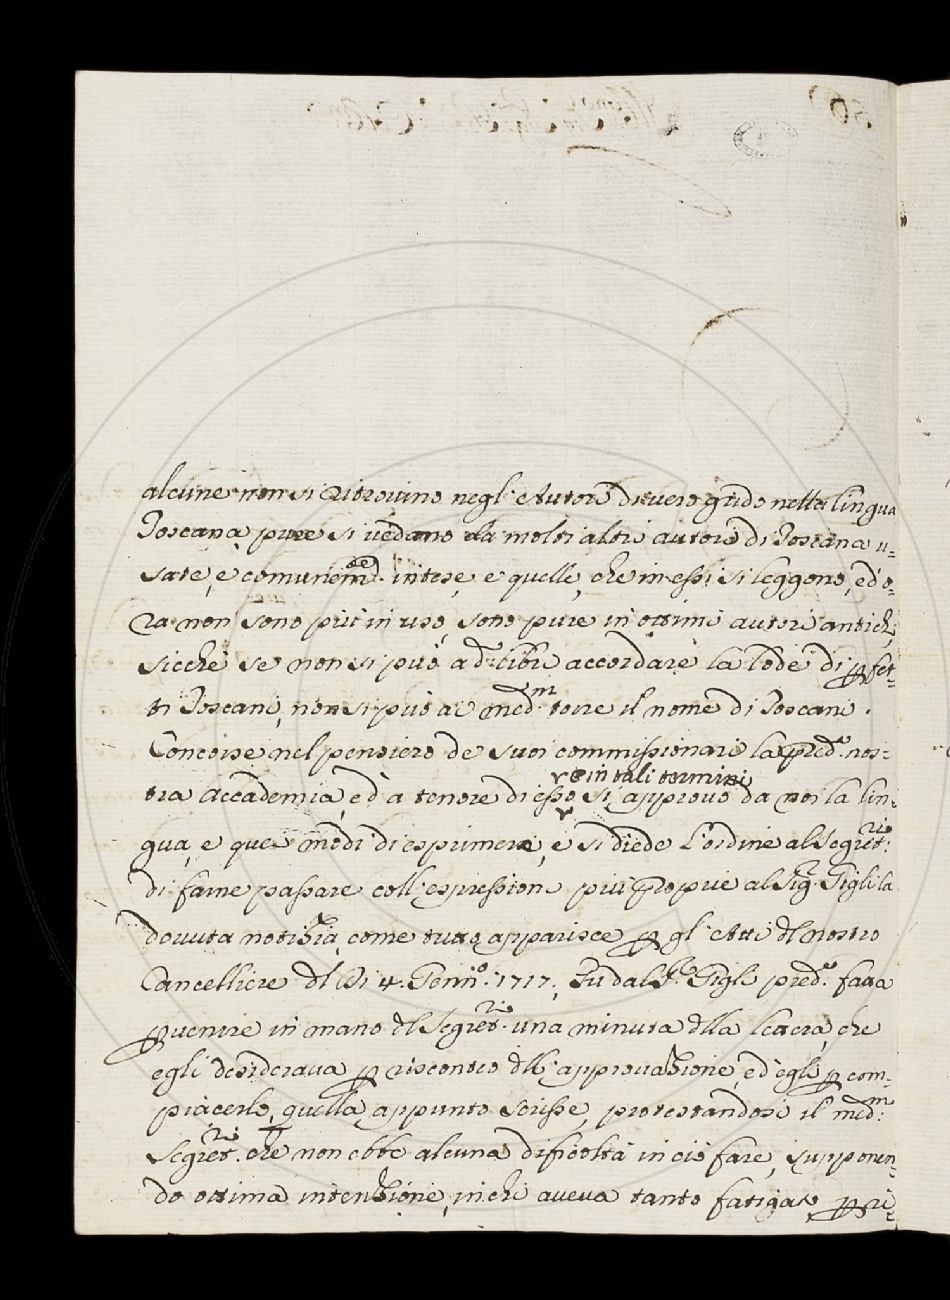 alcune non si ritrovino negl'Autori di vero grido nella lingua
Toscana, pure si vedano da molti altri autori di Toscana u=
sate, e comunem:te intese, e quelle, che in essi si leggono, ed'o=
ra non sono più in uso, sono pure in ottimi autori antichi,
sicchè se non si può a d:i libri accordare la lode di pfet=
ti Toscani, non si può ai med:mi torre il nome di Toscani.
Concorse nel pensiero de suoi commissionari la pred:a nos=
tra Accademia, ed à tenore di esso e in tali termini si approvò da noi la lin=
gua, e quei modi di esprimere, e si diede l'ordine al Segret:rio
di farne passare coll'espressioni più proprie al Sig:r Gigli la
dovuta notizia, come tutto apparisce p gl'Atti dl nostro
Cancelliere dl dì 4. Genn:o 1717. Fu dal S:r Gigli pred:o fatta
pvenire in mano dl Segret:rio una minuta dlla lettera, che
egli desiderava p riscontro dll'approvazione, ed'egli p com=
piacerlo, quella appunto scrisse, protestandosi il med:mo
Segret:rio che non ebbe alcuna dificoltà in ciò fare, supponen=
do ottima intenzione in chi aveva tanto fatigato p ri=